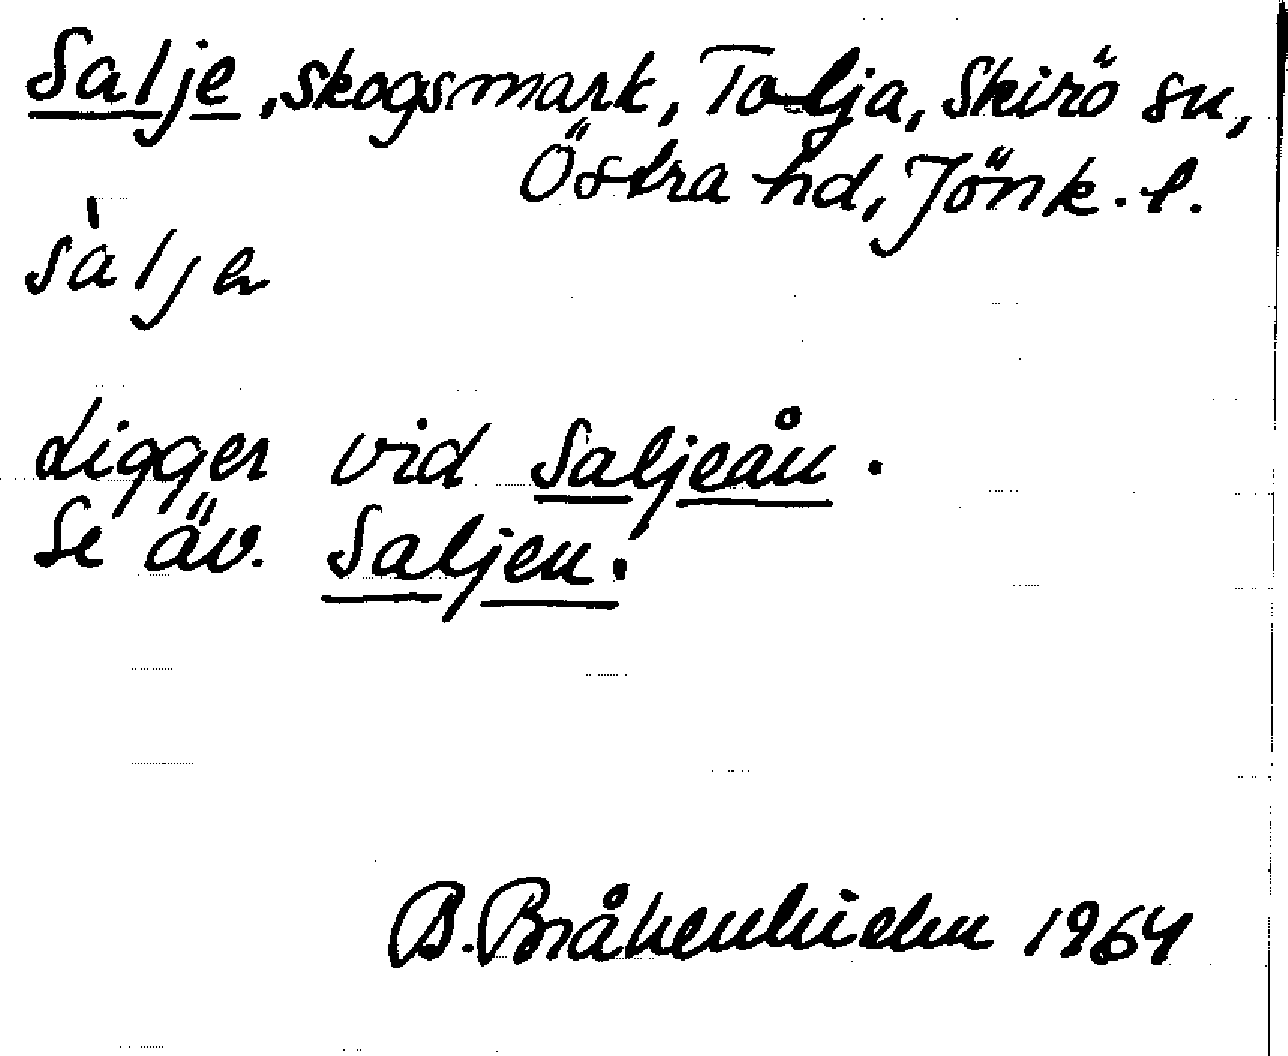 Salje, skogsmark, Tolja, Skirö sn,
Östra hd, Jönk. l.
sàljə
Ligger vid Saljeån.
Se äv. Saljen.
B. Bråkenhielm 1964